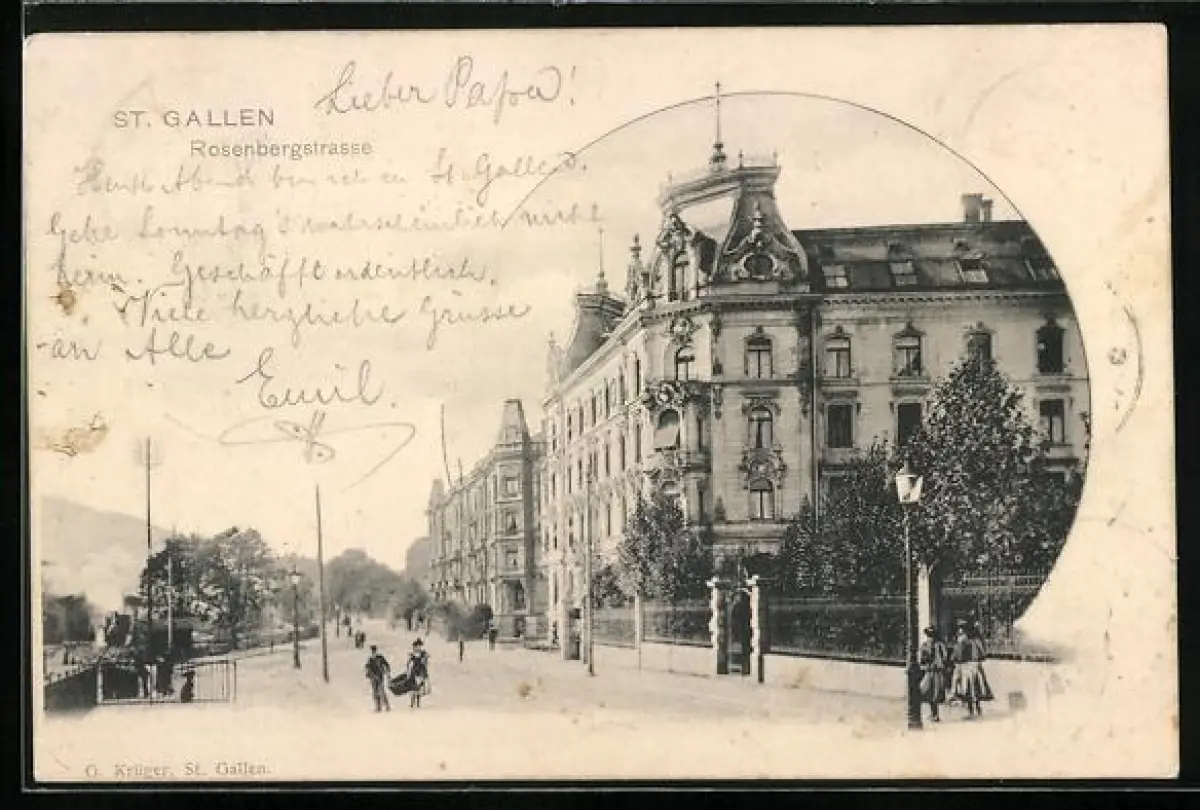 Lieber Papa!
ST. GALLEN
Rosenbergstrasse
Heute Abend bin ich in St. Gallen.
Gehe Sonntag wahrscheinlich nicht
heim. Geschäfft ordentlich.
Viele herzliche Grüsse
an Alle
Emil.
G. Krüger, St. Gallen.